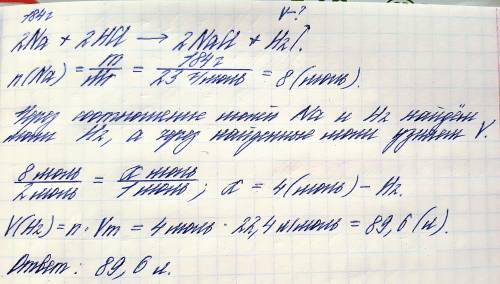 184г V-?
2Na + 2HCl → 2NaCl + H₂↑.
n(Na) = m/Mr = 184г/23 г/моль = 8 (моль).
Через соотношение молей Na и H₂ найдём
моли H₂, а через найденные моли узнаем V.
8 моль/2 моль = x моль/1 моль; x = 4(моль) – H₂.
V(H₂) = n · Vm = 4 моль · 22,4 л/моль = 89,6 (л).
Ответ: 89,6 л.